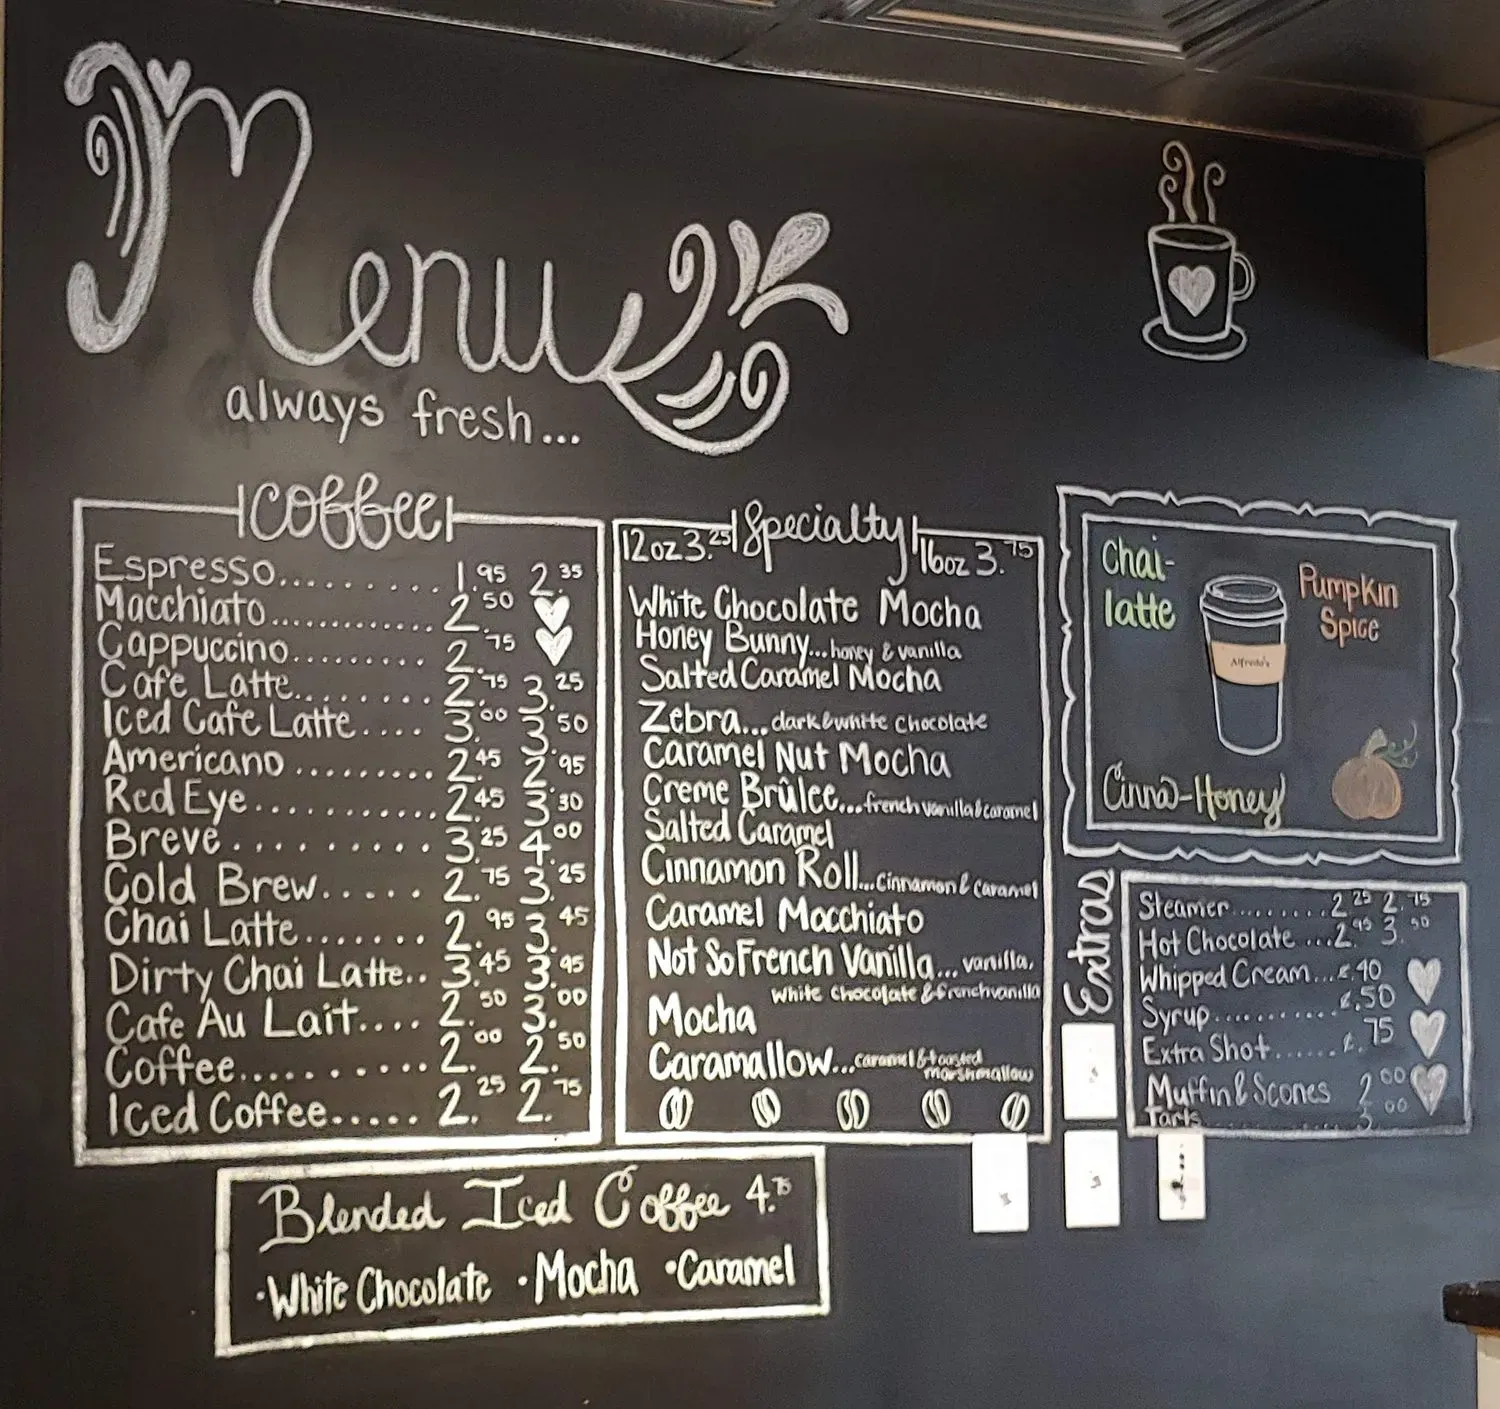 Menu
always fresh...
Coffee
Espresso......... 1.95 2.35
Macchiato............. 2.50
Cappuccino......... 2.75
Cafe Latte......... 2.75 3.25
Iced Cafe Latte.... 3.00 3.50
Americano ......... 2.45 2.95
Red Eye........... 2.45 3.30
Breve.......... 3.25 4.00
Cold Brew..... 2.75 3.25
Chai Latte....... 2.95 3.45
Dirty Chai Latte.. 3.45 3.95
Cafe Au Lait.... 2.50 3.00
Coffee.......... 2.00 2.50
Iced Coffee..... 2.25 2.75
Specialty
12oz 3.25 16oz 3.75
White Chocolate Mocha
Honey Bunny...honey & vanilla
Salted Caramel Mocha
Zebra...dark & white chocolate
Caramel Nut Mocha
Creme Brûlee...french vanilla & caramel
Salted Caramel
Cinnamon Roll...Cinnamon & Caramel
Caramel Macchiato
Not So French Vanilla... vanilla,
white chocolate & french vanilla
Mocha
Caramallow...caramel & toasted
marshmallow
Chai-
latte
Pumpkin
Spice
Alfredo's
Cinna-Honey
Extras
Steamer......... 2.25 2.75
Hot Chocolate ...2.95 3.50
Whipped Cream... .40
Syrup........... .50
Extra Shot...... .75
Muffin & Scones 2.00
Tarts 3.00
Blended Iced Coffee 4.75
·White Chocolate ·Mocha ·Caramel